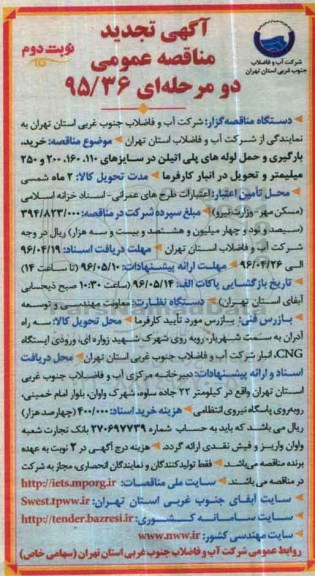 آگهی تجدید
مناقصه عمومی
دو مرحله‌ای ۹۵/۳۶
نوبت دوم
شرکت آب و فاضلاب
جنوب غربی استان تهران
دستگاه مناقصه‌گزار: شرکت آب و فاضلاب جنوب غربی استان تهران به
نمایندگی از شرکت آب و فاضلاب استان تهران موضوع مناقصه: خرید،
بارگیری و حمل لوله های پلی اتیلن در سایزهای ۱۱۰، ۱۶۰، ۲۰۰ و ۲۵۰
میلیمتر و تحویل در انبار کارفرما مدت تحویل کالا: ۲ ماه شمسی
محل تأمین اعتبار: اعتبارات طرح های عمرانی - اسناد خزانه اسلامی
(مسکن مهر - وزارت نیرو) مبلغ سپرده شرکت در مناقصه: ۳۹۴/۸۲۳/۰۰۰
(سیصد و نود و چهار میلیون و هشتصد و بیست و سه هزار) ریال در وجه
شرکت آب و فاضلاب استان تهران مهلت دریافت اسناد: ۹۶/۰۴/۱۹
الی ۹۶/۰۴/۲۶ مهلت ارائه پیشنهادات: ۹۶/۰۵/۱۰ (تا ساعت ۱۴)
تاریخ بازگشایی پاکات الف: ۹۶/۰۵/۱۴ (ساعت ۱۰:۳۰ صبح ذیحسابی
آبفای استان تهران) دستگاه نظارت: معاونت مهندسی و توسعه
بازرس فنی: بازرس مورد تأیید کارفرما محل تحویل کالا: سه راه
آدران به سمت شهریار، روبه روی شهرک شهید زواره ای، ورودی ایستگاه
CNG، انبار شرکت آب و فاضلاب جنوب غربی استان تهران محل دریافت
اسناد و ارائه پیشنهادات: دبیرخانه مرکزی آبفا و فاضلاب جنوب غربی
استان تهران واقع در کیلومتر ۲۲ جاده ساوه، شهرک واوان، بلوار امام خمینی،
روبه‌روی پاسگاه نیروی انتظامی هزینه خرید اسناد: ۴۰۰/۰۰۰ (چهارصد هزار)
ریال می باشد، که باید به حساب شماره ۲۷۰۶۹۷۷۳۹ بانک تجارت شعبه
واوان واریز و فیش نقدی ارائه گردد. هزینه درج آگهی در ۲ نوبت به عهده
برنده مناقصه می‌باشد. فقط تولیدکنندگان و نمایندگان انحصاری، مجاز به شرکت
در مناقصه می باشند. سایت ملی مناقصات: http://iets.mporg.ir
سایت آبفای جنوب غربی استان تهران: Swest.tpww.ir
سایت سامانه کشوری: http://tender.bazresi.ir
سایت مهندسی کشور: www.nww.ir
روابط عمومی شرکت آب و فاضلاب جنوب غربی استان تهران (سهامی خاص)